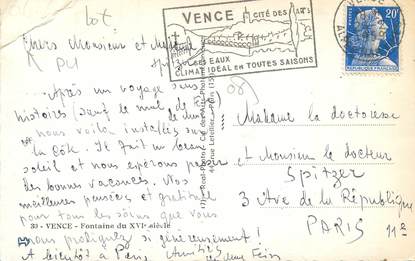 lot
VENCE
CITÉ DES ARTS
SES EAUX
CLIMAT IDÉAL en TOUTES SAISONS
VENCE
20F
RÉPUBLIQUE FRANÇAISE
Chers Monsieur et Madame
Après un voyage sans
histoires (sauf le mal de
nous voilà installés sur
la Côte. Il fait un beau
soleil et nous espérons passer
des bonnes vacances. Nos
meilleures pensées et gratitude
pour tous les soins que vous
33 - VENCE - Fontaine du XVIe siècle
nous prodiguez si généreusement!
A bientôt à Paris, Amitiés
Madame la doctoresse
et Monsieur le docteur
Spitzer
3 Ave de la République
PARIS 11e